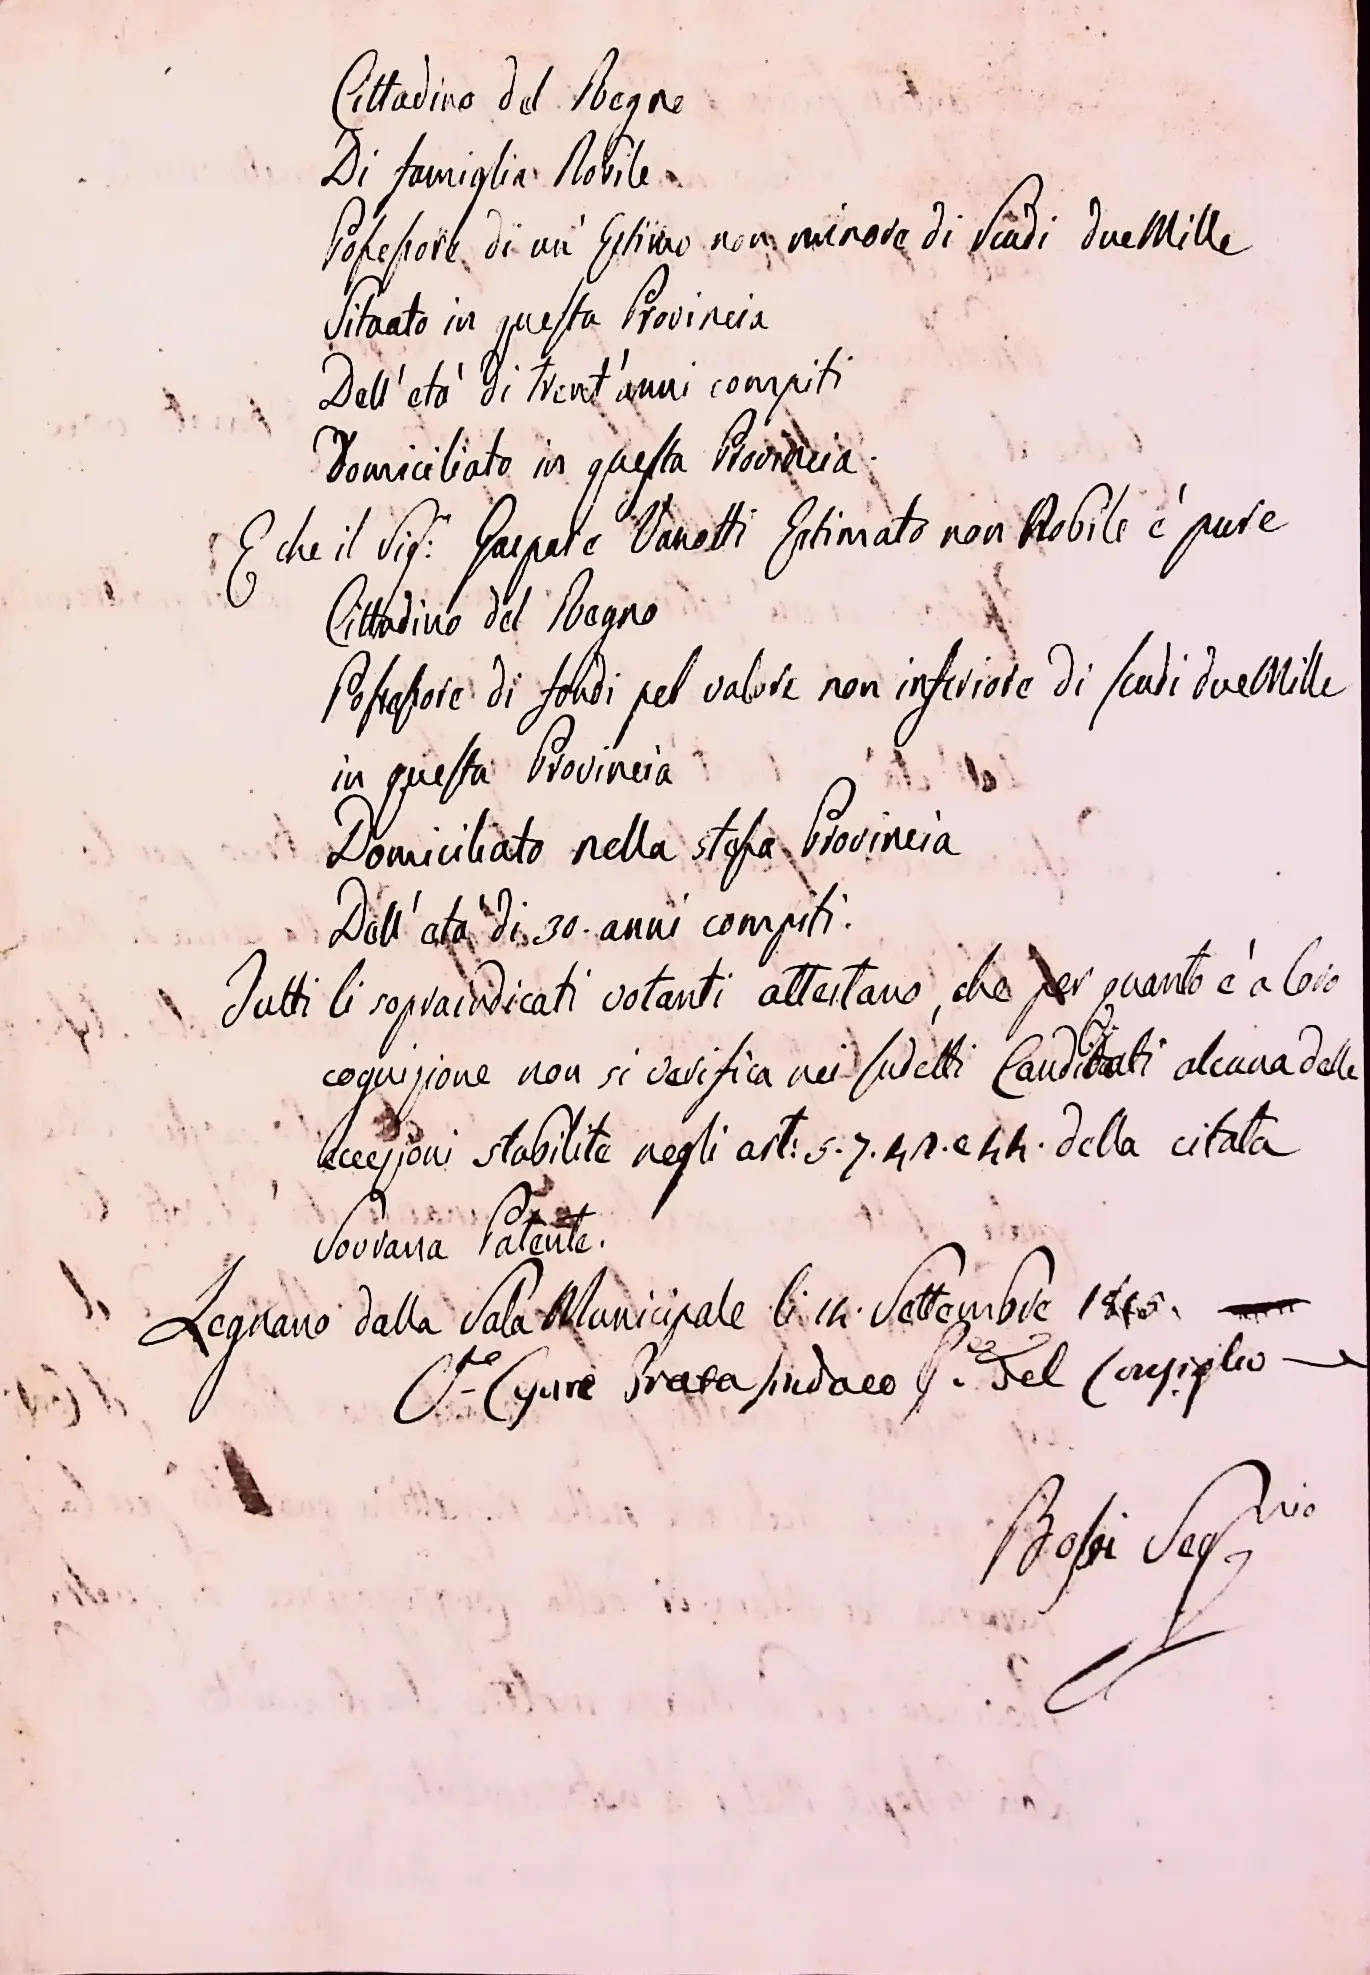 Cittadino del Regno
Di famiglia Nobile
Possessore di un' Estimo non minore di Scudi due Mille
Situato in questa Provincia
Dell' età di trent'anni compiti
Domiciliato in questa Provincia.
E che il Sig.r Gaspare Vanotti Estimato non Nobile è pure
Cittadino del Regno
Possessore di fondi pel valore non inferiore di scudi due Mille
in questa Provincia
Domiciliato nella stessa Provincia
Dell' età di 30. anni compiti.
Tutti li sopraindicati votanti attestano, che per quanto è a loro
cognizione non si verifica nei sudetti Candidati alcuna delle
eccezioni stabilite negli art: 5. 7. 42. e 44. della citata
Sovrana Patente.
Legnano dalla Sala Municipale li 14. Settembre
Sindaco P. del Consiglio
Bossi Seg.rio